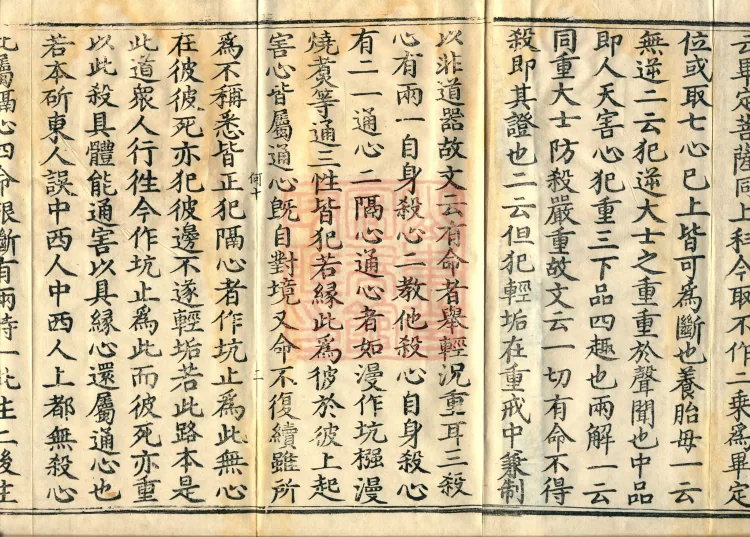 云異定菩薩同上科今取不作二乘為畢定
位或取七心已上皆可為斷也養胎母一云
無逆二云犯逆大士之重重於聲聞也中品
即人天害心犯重三下品四趣也兩解一云
同重大士防殺嚴重故文云一切有命不得
殺即其證也二云但犯輕垢在重戒中兼制
以非道器故文云有命者舉輕況重耳三殺
心有兩一自身殺心二教他殺心自身殺心
有二一通心二隔心通心者如漫作坑搵漫
燒煑等通三性皆犯若緣此為彼於彼上起
害心皆屬通心旣自對境又命不復續雖所
何十
二
為不稱悉皆正犯隔心者作坑止為此無心
在彼彼死亦犯彼邊不遂輕垢若此路本是
此道衆人行徃今作坑止為此而彼死亦重
以此殺具體能通害以具緣心還屬通心也
若本斫東人誤中西人中西人上都無殺心
此屬隔心四命根斷有兩時一此生二後生